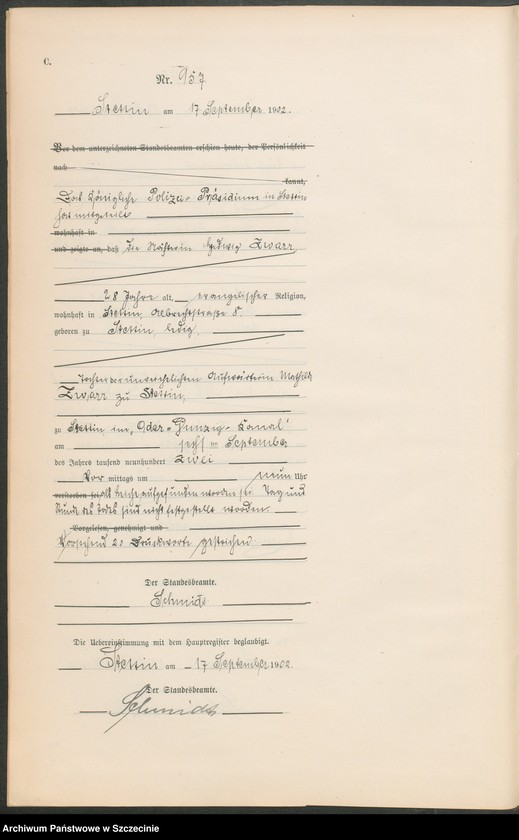 C.
Nr. 957
Stettin am 17 September 1902.
Vor dem unterzeichneten Standesbeamten erschien heute, der Persönlichkeit
nach
kannt,
Das Königliche Polizei-Präsidium in Stettin
hat mitgeteilt
wohnhaft in
und zeigte an, daß die Nähterin Hedwig Zwarr
28 Jahre alt, evangelischer Religion,
wohnhaft in Stettin, Albrechtstraße 8.
geboren zu Stettin, ledig,
Tochter der unverehelichten Aufwärterin Mathilde
Zwarr zu Stettin,
zu Stettin im "Oder-Dunzig-Kanal"
am sechs ten September
des Jahres tausend neunhundert zwei
Vor mittags um neun Uhr
verstorben sei als Leiche aufgefunden worden sei. Tag und
Stunde des Todes sind nicht festgestellt worden.
Vorgelesen, genehmigt und
Vorstehend 20 Druckworte gestrichen.
Der Standesbeamte.
Schmidt
Die Uebereinstimmung mit dem Hauptregister beglaubigt.
Stettin am 17 September 1902.
Der Standesbeamte.
Schmidt
Archiwum Państwowe w Szczecinie